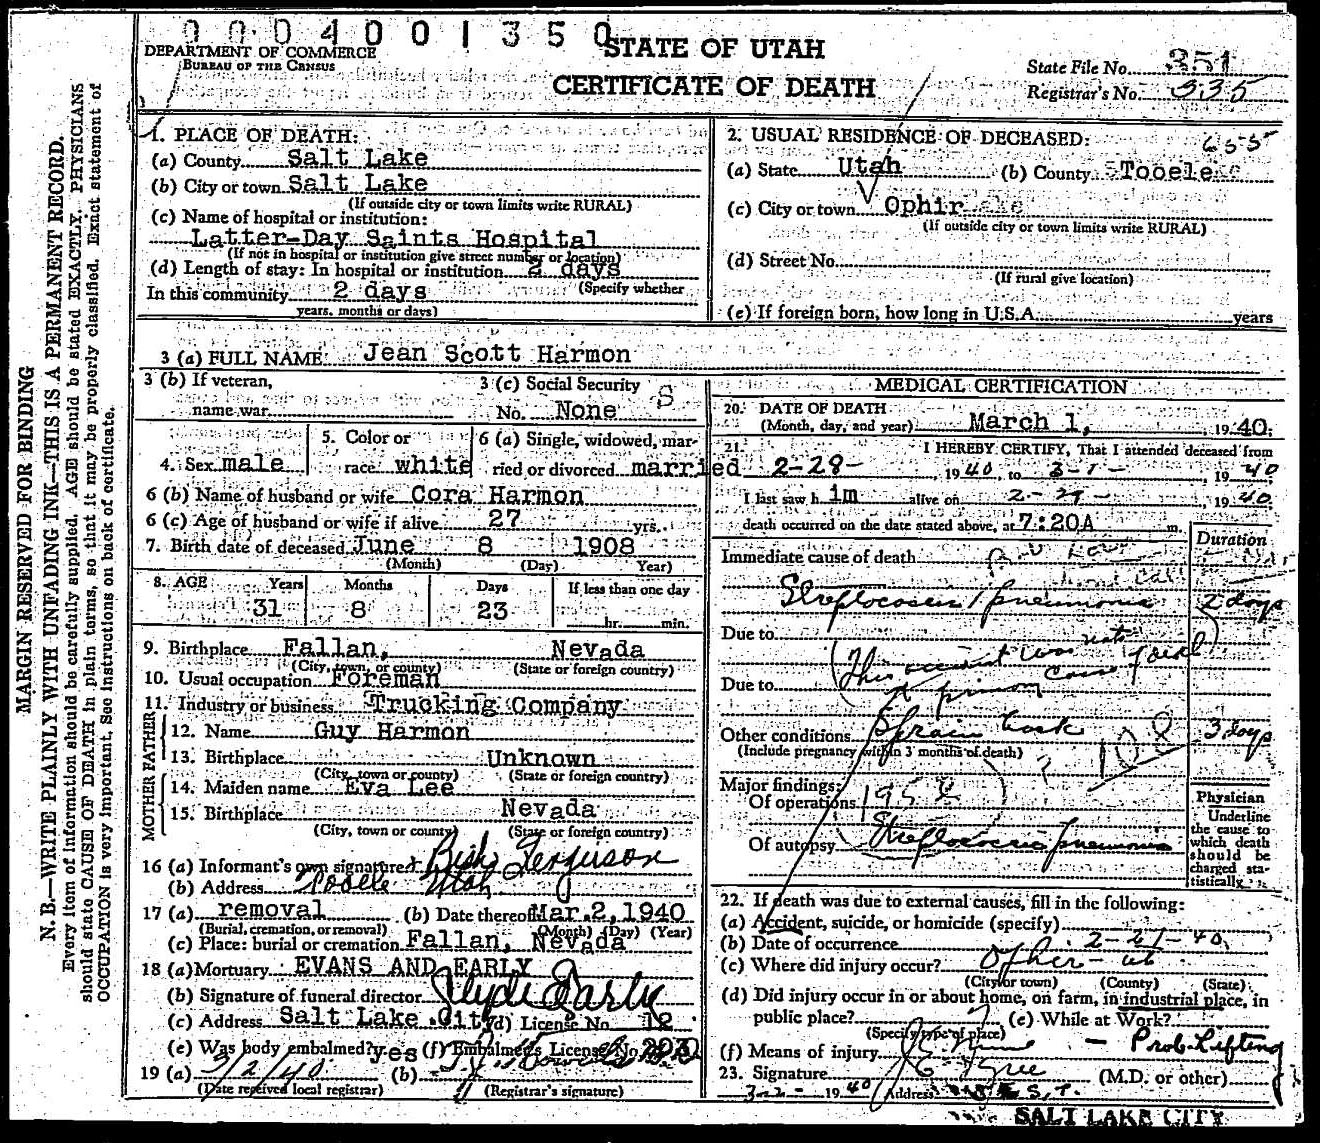 0004001350
DEPARTMENT OF COMMERCE
BUREAU OF THE CENSUS
STATE OF UTAH
CERTIFICATE OF DEATH
State File No. 351
Registrar's No. 335
MARGIN RESERVED FOR BINDING
N. B.—WRITE PLAINLY WITH UNFADING INK—THIS IS A PERMANENT RECORD.
Every item of information should be carefully supplied. AGE should be stated EXACTLY. PHYSICIANS
should state CAUSE OF DEATH in plain terms, so that it may be properly classified. Exact statement of
OCCUPATION is very important. See instructions on back of certificate.
1. PLACE OF DEATH:
(a) County Salt Lake
(b) City or town Salt Lake
(If outside city or town limits write RURAL)
(c) Name of hospital or institution:
Latter-Day Saints Hospital
(If not in hospital or institution give street number or location)
(d) Length of stay: In hospital or institution 2 days
(Specify whether
In this community 2 days
years, months or days)
2. USUAL RESIDENCE OF DECEASED:
(a) State Utah (b) County Tooele
(c) City or town Ophir
(If outside city or town limits write RURAL)
(d) Street No.
(If rural give location)
(e) If foreign born, how long in U.S.A. years
3 (a) FULL NAME: Jean Scott Harmon
3 (b) If veteran,
name war
3 (c) Social Security S
No. None
4. Sex male
5. Color or
race white
6 (a) Single, widowed, mar-
ried or divorced married
6 (b) Name of husband or wife Cora Harmon
6 (c) Age of husband or wife if alive 27 yrs.
7. Birth date of deceased June 8 1908
(Month) (Day) Year)
8. AGE Years Months Days If less than one day
31 8 23 hr. min.
9. Birthplace Fallan, Nevada
(City, town, or county) (State or foreign country)
10. Usual occupation Foreman
11. Industry or business Trucking Company
FATHER
12. Name Guy Harmon
13. Birthplace Unknown
(City, town or county) (State or foreign country)
MOTHER
14. Maiden name Eva Lee
15. Birthplace Nevada
(City, town or county) (State or foreign country)
16 (a) Informant's own signature Bish Ferguson
(b) Address Tooele Utah
17 (a) removal (b) Date thereof Mar. 2, 1940
(Burial, cremation, or removal) (Month) (Day) (Year)
(c) Place: burial or cremation Fallan, Nevada
18 (a) Mortuary EVANS AND EARLY
(b) Signature of funeral director Clyde Early
(c) Address Salt Lake City (d) License No. 12
(e) Was body embalmed? yes (f) Embalmer's License No. 203
19 (a) 3/2/40 (b)
(Date received local registrar) (Registrar's signature)
MEDICAL CERTIFICATION
20. DATE OF DEATH
(Month, day, and year) March 1, 1940.
21. I HEREBY CERTIFY, That I attended deceased from
2-28- 1940, to 3-1- 1940
I last saw h im alive on 2-29- 1940.
death occurred on the date stated above, at 7:20A m.
Duration
Immediate cause of death
Streptococcus pneumonia 2 days
Due to
(This accident was not
Due to
Other conditions Sprain back 3 days
(Include pregnancy within 3 months of death) 108
Major findings:
Of operations
Of autopsy Streptococcus pneumonia
Physician
Underline
the cause to
which death
should be
charged sta-
tistically.
22. If death was due to external causes, fill in the following:
(a) Accident, suicide, or homicide (specify)
(b) Date of occurrence 2-21-40,
(c) Where did injury occur? Opher - ut
(City or town) (County) (State)
(d) Did injury occur in or about home, on farm, in industrial place, in
public place? (e) While at Work?
(Specify type of place)
(f) Means of injury - Prob. Lifting
23. Signature (M.D. or other)
3-2- 1940 Address
SALT LAKE CITY